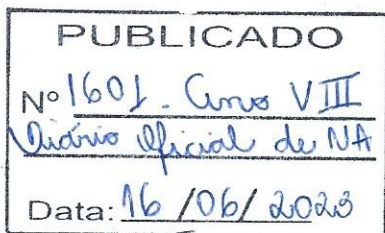 PUBLICADO
Nº 1601 - Ano VIII
Diário Oficial de NA
Data: 16 /06/ 2023